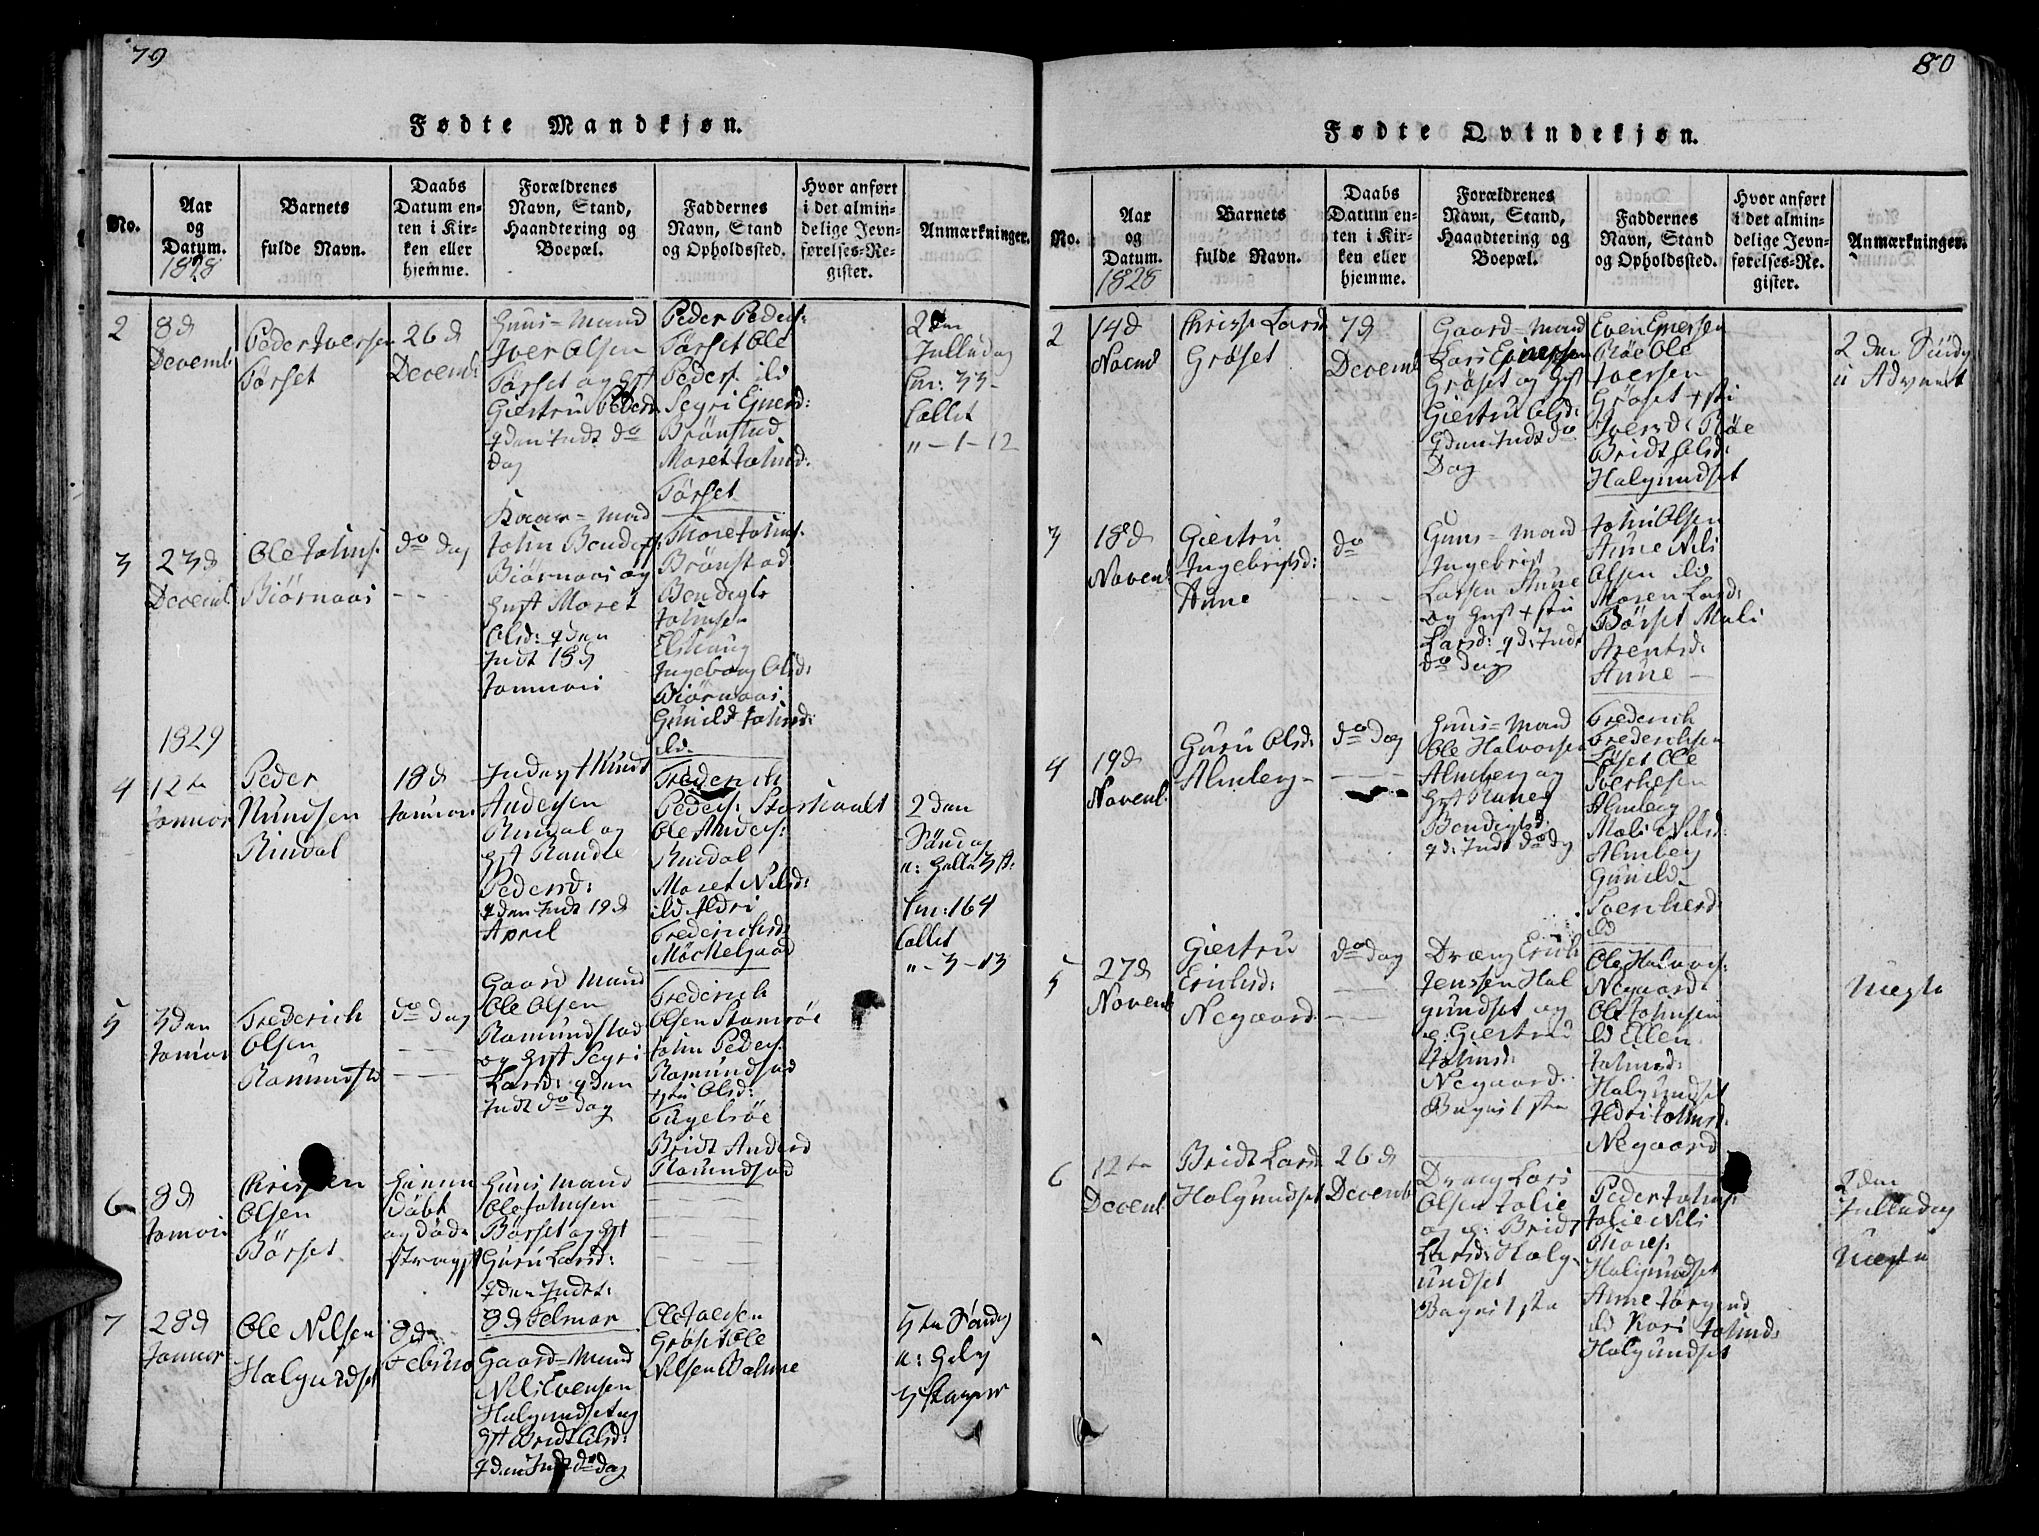 79
Fødte Mandkjøn.
No.
Aar
og
Datum.
1828
Barnets
fulde Navn.
Daabs
Datum en-
ten i Kir-
ken eller
hjemme.
Forældrenes
Navn, Stand,
Haandtering og
Boepæl.
Faddernes
Navn, Stand
og Opholdssted.
Hvor anført
i det almin-
delige Jevn-
førelses-Re-
gister.
Anmærkninger.
2
8d
Decemb
Peder Iversen
Torset
26d
Decemb
Huus=Mand
Iver Olsen
Torset og Hst
Giertru Pedersd
den Indt do
dag
Peder Peders:
Torset Ole
Peders ild
Segri Ejnersd:
Brønstad
Moret Johnsd:
Torset
2den
Julledag
Com: 33-
Collet
"-1-12
3
23d
Decemb
Ole Johns.
Biørnaas
do dag
Kaar=Mand
John Bendigs
Biørnaas og
Hust Moret
Olsd: den
Indt 18d
Januari
Brønstad
Bendigt
Johnsen
Elshaug
Ingeborg Olsd:
Biørnaas
Gunild Johnsd:
ild
1829
4
12te
Januar
Peder
Knudsen
Rindal
18d
Januar
Knudt
Andersen
Rindal og
Hst Randie
Pedersd:
den Indt 19d
April
Frederich
Peders:
Ole Anders:
Rindal
Moret Nilsd:
ild Ildri
Frederichsd:
Møckelgaard
2den
Søndag
a: Hellig 3 K:
Com: 164
Collet
"-3-13
5
3den
Januar
Frederich
Olsen
Romundstd
do dag
Gaard Mand
Ole Olsen
Romundstad
og Hst Segri
Larsd: den
Indt do dag
Frederich
Olsen Stamrøe
John Peders:
Romundstad
Olsd:
Fugelsøe
Bridt Andersd
Romundstad
6
8d
Januari
Olsen
Børset
Hiemme
Døbt
og død
strags
Huus Mand
Ole Johnsen
Børset og Hst
Guru Larsd:
den Indt:
8d Februar
7
28d
Januar
Ole Nilsen
Halgundset
8de
Februa
Gaard=Mand
Nils Evensen
Halgundset og
Hst Bridt Olsd:
den Indt do dag
Grøset Ole
Nilsen Bolme
5te Søndag
a: Hely
3 Konger
80
Fødte Qvindekjøn.
No.
Aar
og
Datum.
1828
Barnets
fulde Navn.
Daabs
Datum en-
ten i Kir-
ken eller
hjemme.
Forældrenes
Navn, Stand,
Haandtering og
Boepæl.
Faddernes
Navn, Stand
og Opholdssted.
Hvor anført
i det almin-
delige Jevn-
førelses-Re-
gister.
Anmærkninger.
2
14d
Grøset
7d
Decemb
Gaard=Mand
Lars Ejnersen
Grøset og Hst
Giertru Olsd:
den Indt do
Dag
Even Ejnersen
Røe Ole
Iversen
Grøset
Iversd: Røe
Bridt Olsd:
Halgundset
2den Søndag
i Advent
3
18d
Novemb
Giertru
Ingebrigtsd:
Aune
do
Huus=Mand
Ingebrigt
Larsen Aune
og Hust
Larsd: d: Indt
do dag
John Olsen
Aune Nils
Olsen ild
Moren Larsd:
Børset Mali
Arentsd:
Aune
4
19d
Novemb
Guru Olsd:
Almberg
do dag
Huus=Mand
Ole Halvorsen
Almberg og
Bendigtsd:
d: Indt do dag
Frederich
Frederichsen
Løset Ole
Almberg
Mali Nilsd:
Almberg
Gunild
ild
5
27d
Novemb
Giertru
Erichsd:
Negaard
do dag
Dræng Erich
Jenssen Hal
gundset og
p: Giertru
Johnsd:
Negaard
Begges 1ste
Ole Halvors:
Negaard
Ole Johnsen
ild Ellen
Johnsd:
Halgundset
Ildri Johnsd:
Negaard
Uægte
6
12te
Decemb
Bridt Larsd
Halgundset
26d
Decemb
Dræng Lars
Olsen Jolie
og p: Bridt
Larsd: Halg-
undset
Begges 1ste
Peder Johns:
Jolie Nils
Thores:
Halgundset
Anne Jørgensd
ild Kari Johnsd:
Halgundset
2den
Julledag
Uægte